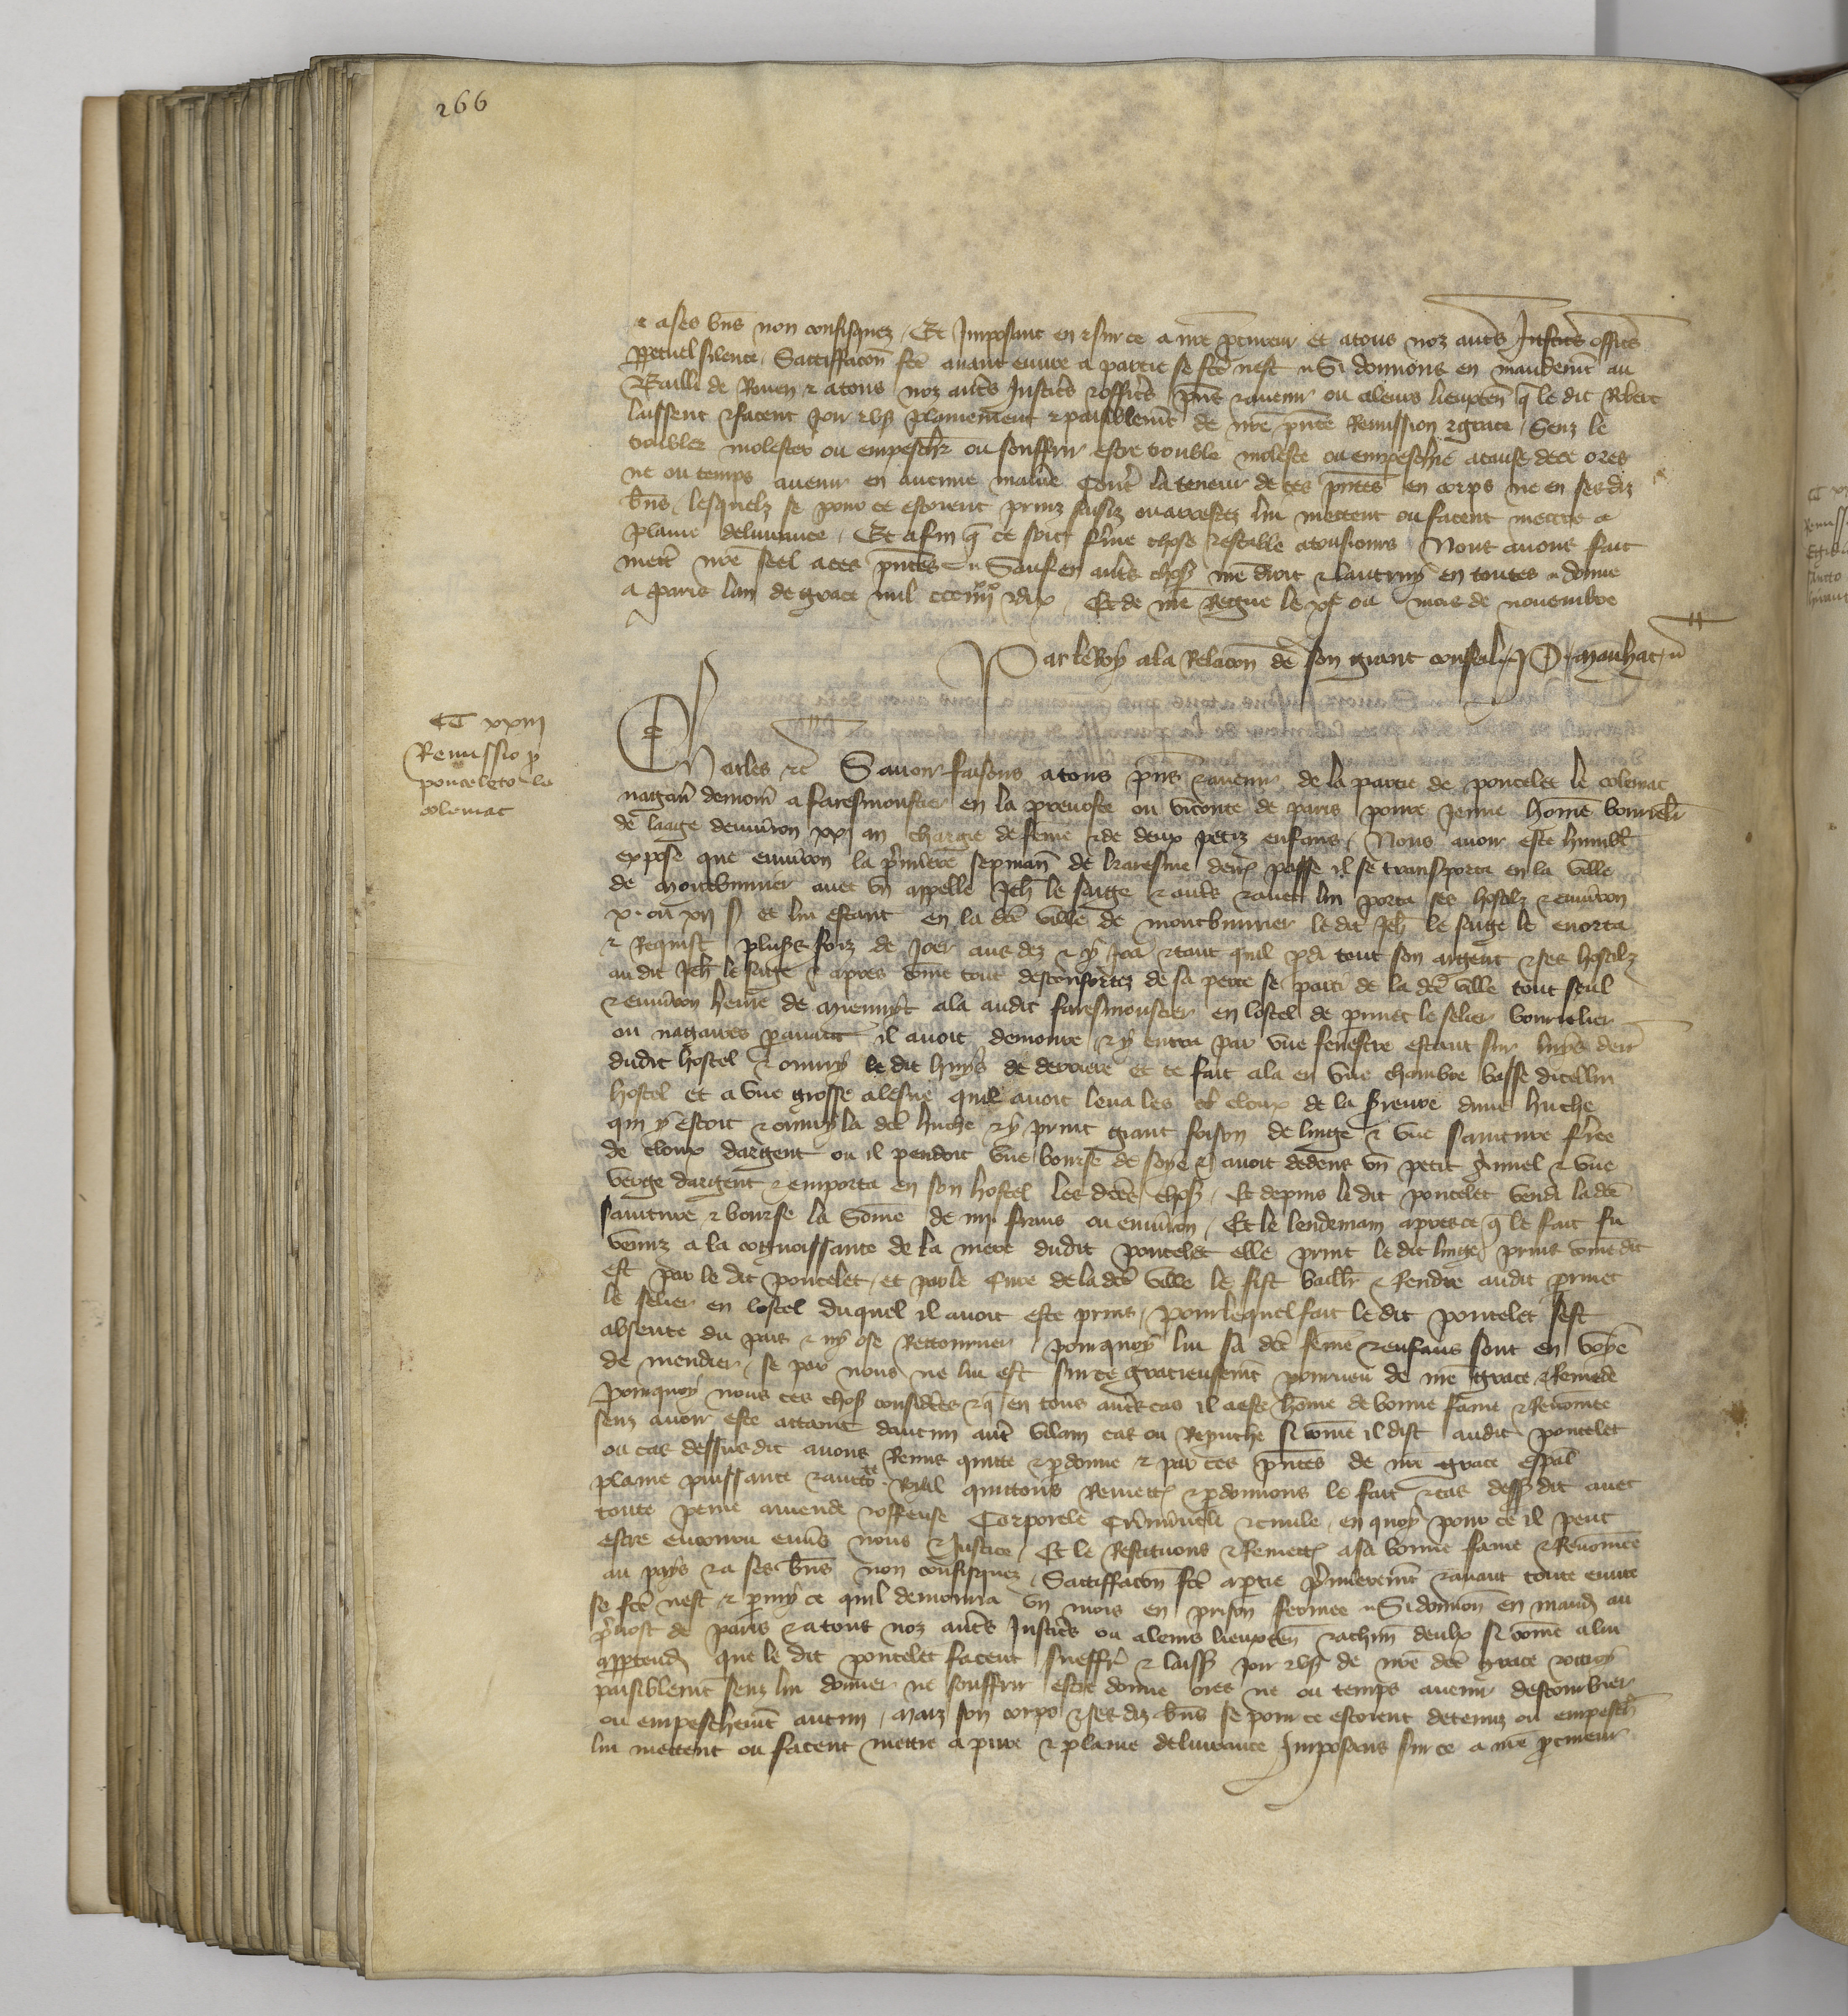 266
& a ses bns non confisquez / Et Imposant en & sur ce a nre pcureur et a tous noz autes Justices offices
ppetuel silence / Sattiffacon fcte avant euvre a partie se fcte nest // Si donnons en mandemt au
Bailli de Rouen & a tous noz autes Justices & offices pns & avenir ou a leurs lieuxten q le dit Robert
laissent & facent Joir & user plainement & paisiblemt de nre pnte Remission & grace / Senz le
troubler molester ou empescher ou souffrir estre trouble moleste ou empeschie a cause de ce ores
ne ou temps avenir en aucune maniere contre la teneur de ces pntes en corps ne en ses diz
biens / lesquelz se pour ce estoient prins saisiz ou arrestez lui mettent ou facent mettre a
plaine delivrance / Et afin q ce soit ferme chose & estable a tousiours Nous avons fait
mett nre seel a ces pntes // Sauf en autes choses nre droit & lautruy en toutes // donne
a Paris lan de grace mil ccciiijxx & dix / Et de nre Regne le xje ou mois de novembre
Par le Roy a la Relacon de son grant conseil / P. Manhac //
CC xxiij
Remissio p
ponceleto le
colemac
Charles &c Savoir faisons a tous pns & avenir de la partie de poncelet le colemac
nagair demour a faresmoustier en la prevoste ou viconte de paris povre Jeune home bourrelier
de laage denviron xx an chargie de feme & de deux petiz enfans / Nous avoir este humblt
expose que environ la premiere sepmaine de karesme derr passe il se transporta en la ville
de montbrimer avec un appelle Jeh le sage & autes & avec lui porta ses hostilz & environ
x. ou xij s et lui estant en la dcte ville de montbrimer le dit Jeh le sage le enorta
& Requist pluss foiz de Joer aus dez & y Joa & tant quil pdi tout son argent & ses hostilz
au dit Jeh le sage & apres come tout desconfortez de sa perte se parti de la dcte ville tout seul
& environ heure de mienuyt ala audit faresmoustier en lostel de perinet le selier bourrelier
ou nagaires paravant il avoit demoure & y entra par une fenestre estant sur luys derr
dudit hostel & ouvry le dit huys de derriere et ce fait ala en une chambre basse dicellui
hostel et a une grosse alesne quil avoit leva les cloux de la serreure dune huche
qui y estoit & ouvry la dcte huche & y print grant foison de linge & une sainture ferree
de cloux dargent ou il pendoit une bourse de soye & avoit dedens un petit annel & une
verge dargent & emporta en son hostel les dctes choses / Et depuis le dit poncelet vendi la dcte
sainture & bourse la some de iiij frans ou environ / Et le lendemain apres ce q le fait fu
venuz a la cognoissance de la mere dudit poncelet elle print le dit linge prins come dit
est par le dit poncelet / et par le cure de la dcte ville le fist baillr & Rendre audit perinet
le selier en lostel duquel il avoit este prins / Pour lequel fait le dit poncelet sest
absente du pais & ny ose Rettourner / pour quoy lui sa dcte feme & enfans sont en voye
de mendier / se par nous ne lui est sur ce gracieusemt pourveu de nre grace & Remede
Pourquoy nous ces choses considerees & q en tous autes cas il a este home de bonne fame & Renomee
senz avoir este attaint daucun aute vilain cas ou Reprouche si come il dist audit poncelet
ou cas dessusdit avons Remis quitte & pdonne & par ces pntes de nre grace espal
plaine puissance & auctote Roial quittons Remett & pdonnons le fait & cas dessusdit avec
toute peine amende & offense Corporele Criminele & civile / en quoy pour ce il peut
estre encouru envs nous & Justice / Et le Restituons & Remett a sa bonne fame & Renomee
au pays & a ses bns non confisquez / Sattiffacon fcte a ptie premieremt & avant toute euvre
se fcte nest & pmy ce quil demourra un mois en prison fermee // Si donnon en mand au
prevost de paris & a tous noz autes Justices ou a leurs lieuxten & a chun deulx si come a lui
appartend que le dit poncelet facent sueffr & laiss joir & user de nre dcte grace & ottroy
paisiblemt senz lui donner ne souffrir estre donne ores ne ou temps avenir destourbier
ou empeschemt aucun / Maiz son corps & ses diz bns se pour ce estoient detenuz ou empesch
lui mettent ou facent mettre a pure & plaine delivrance Imposans sur ce a nre pcureur